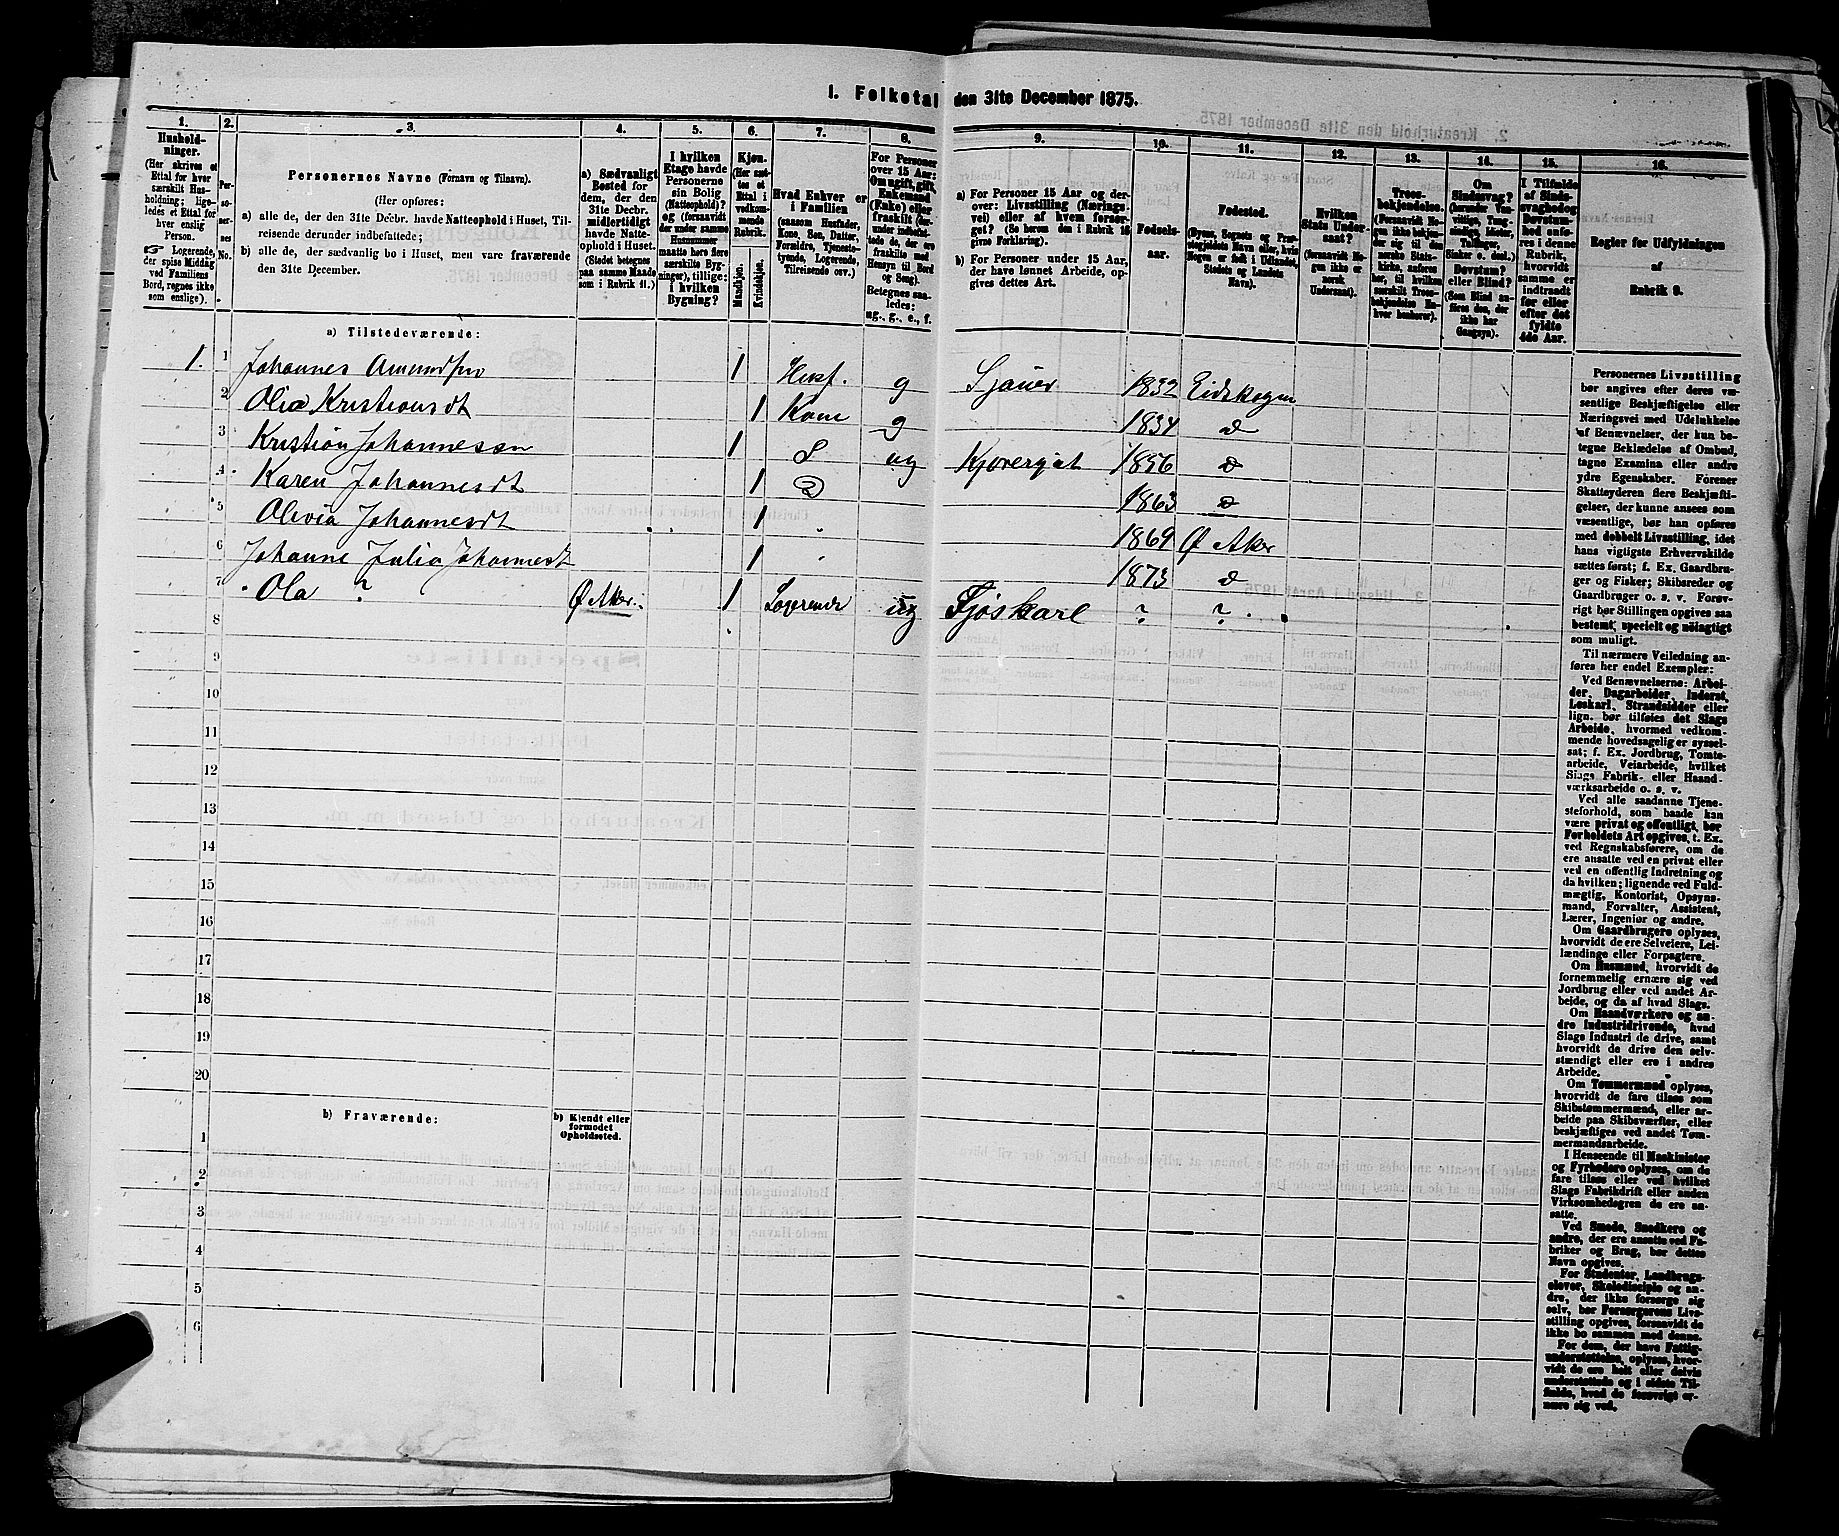 1. Folketal den 31te December 1875.
1. 2. 3. 4. 5. 6. 7. 8. 9. 10. 11. 12. 13. 14. 15. 16.
Hushold-
ninger.
(Her skrives et
Ettal for hver
særskilt Hus-
holdning; lige-
ledes et Ettal for
hver enslig
Person.
Logerende,
der spise Middag
ved Familiens
Bord, regnes ikke
som enslige).
Personernes Navne (Fornavn og Tilnavn).
(Her opføres:
a) alle de, der den 31te Decbr. havde Natteophold i Huset, Til-
reisende derunder indbefattede;
b) alle de, der sædvanlig bo i Huset, men vare fraværende
den 31te December.
a) Sædvanligt
Bosted for
dem, der den
31te Decbr.
midlertidigt
havde Natte-
ophold i Huset.
(Stedet betegnes
paa samme Maade
som i Rubrik 11.)
I hvilken
Etage havde
Personerne
sin Bolig
(Natteophold)?
og (forsaavidt
der under samme
Husnummer
maatte høre flere
særskilte Byg-
ninger), tillige:
i hvilken
Bygning?
Kjøn.
(Her sæt-
tes et
Ettal i
vedkom-
mende
Rubrik.
Mandkjøn.
Kvindekjøn.
Hvad Enhver er
i Familien
(saasom Husfader,
Kone, Søn, Datter,
Forældre, Tjeneste-
tyende, Logerende,
Tilreisende osv.)
For Personer
over 15 Aar:
Om ugift, gift,
Enkemand
(Enke) eller
fraskilt
Betegnes saa-
ledes:
ug., g., e., f.
a) For Personer 15 Aar og der-
over: Livsstilling (Nærings-
vei) eller af hvem forsør-
get? (Se herom den i Rubrik 16
givne Forklaring).
b) For Personer under 15 Aar,
der have lønnet Arbeide, op-
gives dettes Art.
Fødsels-
aar.
Fødested.
(Byens, Sognets og Præ-
stegjeldets Navn eller, hvis
Nogen er født i Udlandet,
Stedets og Landets
Navn).
Hvilken
Stats Under-
saat?
(forsaavidt No-
gen ikke er
norsk
Undersaat).
Troes-
bekjendelse.
(Forsaavidt No-
gen ikke bekjen-
der sig til den
norske Stats-
kirke, anføres
her, til hvilken
særskilt Troes-
bekjendelse En-
hver henhører).
Om
Sindssvag?
Døvstum?
eller Blind?
I Tilfælde
af Sinds-
svaghed og
Døvstum-
hed anfø-
res i denne
Rubrik,
hvorvidt
samme er
indtraadt
før eller
efter det
fyldte
4de Aar.
Regler for Udfyldningen
af
Rubrik 9.
a) Tilstedeværende:
1. 1 Johannes Amundsen 1 Husf. g Sjauer 1832 Eidskogen
2 Olia Kristiansdt 1 Kone g 1834 d
3 Kristian Johannessen 1 S ug Kjøregut 1856 d
4 Karen Johannesdt 1 D 1863 d
5 Olivia Johannesdt 1 " 1869 Ø Aker
6 Johanne Julia Johannesdt 1 " 1873 d
7 Ola ? Ø Aker. 1 Logerende ug Fjøskarl ? ?
8
9
10
11
12
13
14
15
16
17
18
19
20
b) Fraværende:
b) Kjendt eller
formodet
Opholdssted.
1
2
3
4
5
6
Personernes Livsstilling
bør angives efter deres væ-
sentlige Beskjæftigelse eller
Næringsvei med Udelukkelse
af Benævnelser, der kun be-
tegne Beklædelse af Ombud,
tagne Examina eller andre
ydre Egenskaber. Forener
Skatteyderen flere Beskjæfti-
gelser, der kunne ansees som
væsentlige, bør han opføres
med dobbelt Livsstilling, idet
hans vigtigste Erhvervskilde
sættes først; f. Ex. Gaardbru-
ger og Fisker; Skibsreder og
Gaardbruger o. s. v. Forøv-
rigt bør Stillingen opgives saa
bestemt, specielt og nøiagtigt
som muligt.
Til nærmere Veiledning an-
føres her endel Exempler:
Ved Benævnelserne: Arbei-
der, Dagarbeider, Inderst,
Løskarl, Strandsidder eller
lign. bør tilføies det Slags
Arbeide, hvormed vedkom-
mende hovedsagelig er syssel-
sat; f. Ex. Jordbrug, Tomte-
arbeide, Veiarbeide, hvilket
Slags Fabrik- eller Haand-
værksarbeide o. s. v.
Ved alle saadanne Tjene-
steforhold, som baade kan
være privat og offentligt, bør
Forholdets Art opgives, t. Ex.
ved Regnskabsførere, om de
ere ansatte ved en privat eller
ved en offentlig Indretning og
da hvilken; lignende ved Fuld-
mægtig, Kontorist, Opsyns-
mand, Forvalter, Assistent,
Lærer, Ingeniør og andre.
Om Gaardbrugere oplyses,
hvorvidt de ere Selveiere, Lei-
lændinge eller Forpagtere.
Om Husmænd, hvorvidt de
fornemmelig ernære sig ved
Jordbrug eller ved andet Ar-
beide, og da af hvad Slags.
Om Haandværkere og an-
dre Industridrivende, hvad
Slags Industri de drive, samt
hvorvidt de drive den selv-
stændigt eller ere i andres
Arbeide.
Om Tømmermænd oplyses,
hvorvidt de fare tilsøs som
Skibstømmermænd, eller ar-
beide paa Skibsværfter, eller
beskjæftiges ved andet Tøm-
mermandsarbeide.
I Henseende til Maskinister
og Fyrbødere oplyses, om de
fare tilsøs eller ved hvilket
Slags Fabrikdrift eller anden
Virksomhedsgren de ere an-
satte.
Ved Smede, Snedkere og
andre, der ere ansatte ved Fa-
briker og Brug, bør dettes
Navn opgives.
For Studenter, Landbrugs-
elever, Skoledisciple og an-
dre, der ikke forsørge sig
selv, bør Forsørgerens Livs-
stilling opgives, forsaavidt de
ikke bo sammen med denne.
For dem, der have Fattig-
understøttelse, oplyses, hvor-
vidt de ere helt eller delvis
understøttede og i sidste Til-
fælde, hvad de forøvrigt er-
nære sig ved.